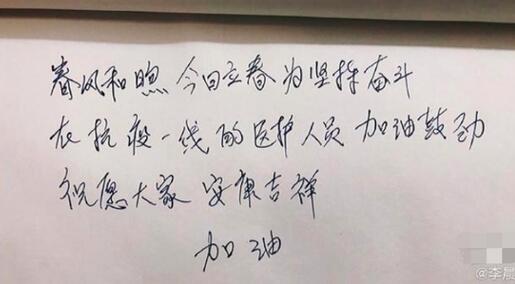 春风和煦 今日立春 为坚持奋斗
在抗疫一线的医护人员 加油鼓劲
祝愿大家 安康吉祥
加油
@李晨